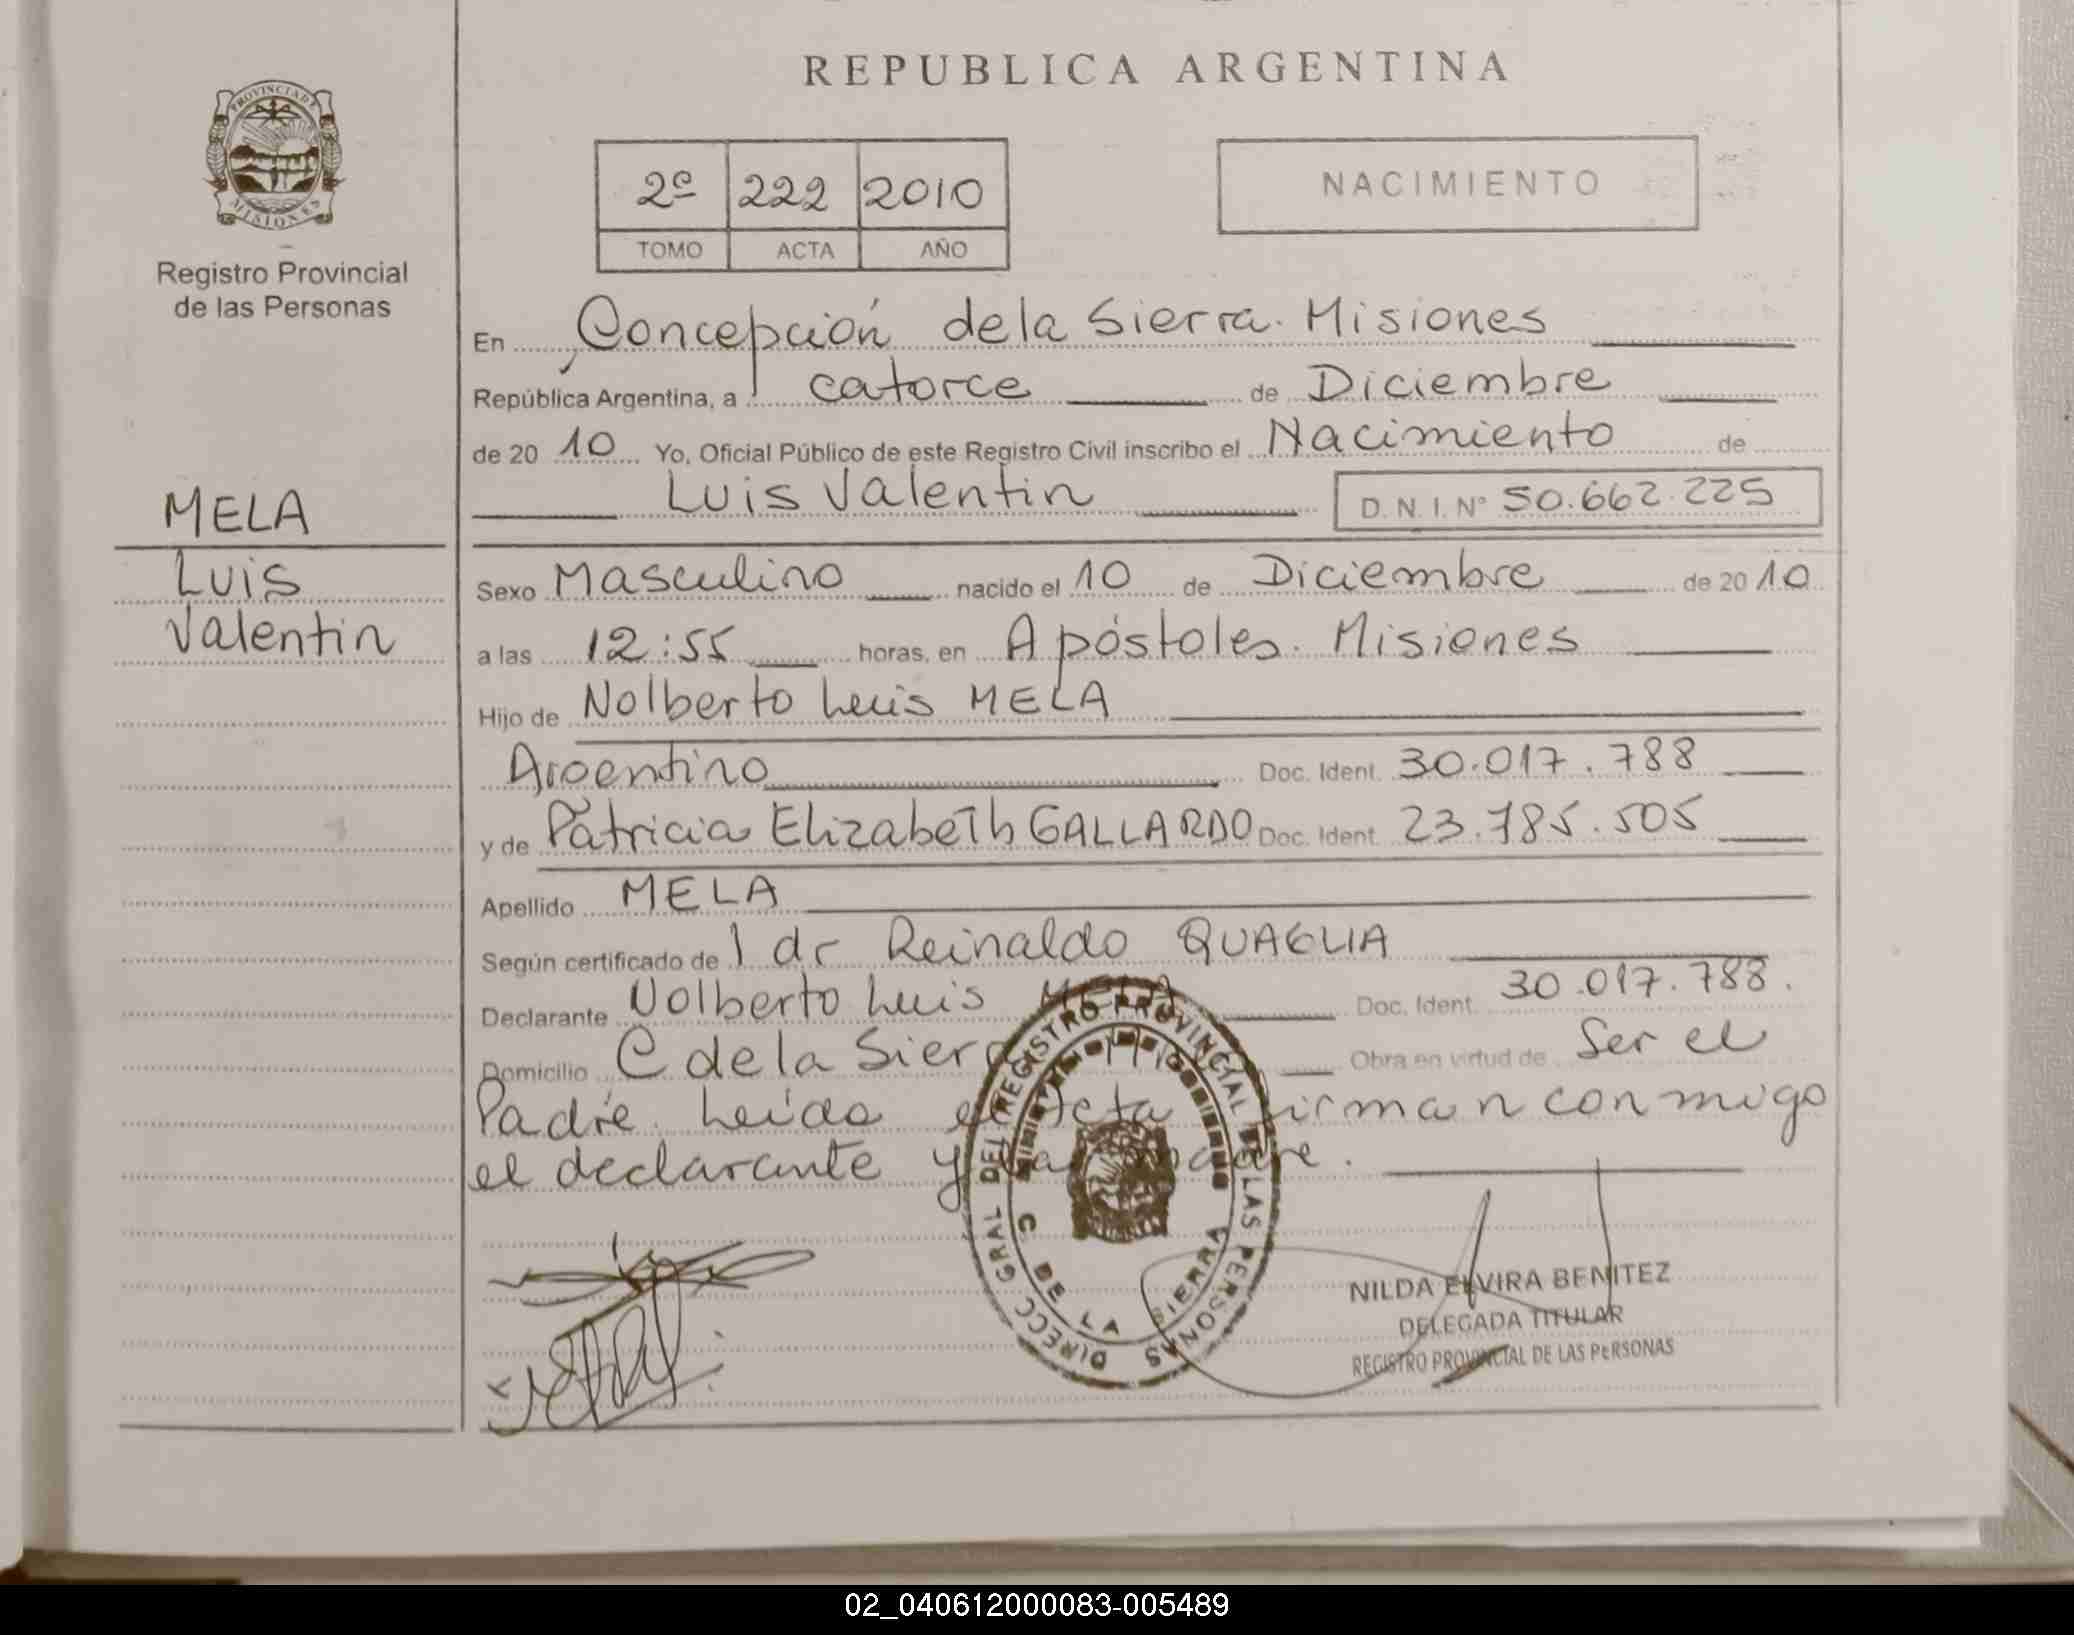 REPUBLICA ARGENTINA
PROVINCIA DE
MISIONES
Registro Provincial
de las Personas
2º 222 2010
TOMO ACTA AÑO
NACIMIENTO
En Concepción de la Sierra. Misiones
República Argentina, a catorce de Diciembre
de 20 10 Yo, Oficial Público de este Registro Civil inscribo el Nacimiento de
Luis Valentin D. N. I. Nº 50.662.225
MELA
Luis
Valentin
Sexo Masculino nacido el 10 de Diciembre de 20 10
a las 12:55 horas, en Apóstoles. Misiones
Hijo de Nolberto Luis MELA
Argentino Doc. Ident. 30.017.788
y de Patricia Elizabeth GALLARDO Doc. Ident. 23.785.505
Apellido MELA
Según certificado de l dr Reinaldo QUAGLIA
Declarante Nolberto Luis MELA Doc. Ident. 30.017.788.
Domicilio C de la Sierra Obra en virtud de Ser el
Padre. Leída el Acta firman conmigo
el declarante y la madre.
DIRECC GRAL DEL REGISTRO PROVINCIAL DE LAS PERSONAS
C DE LA SIERRA
NILDA ELVIRA BENITEZ
DELEGADA TITULAR
REGISTRO PROVINCIAL DE LAS PERSONAS
02_040612000083-005489